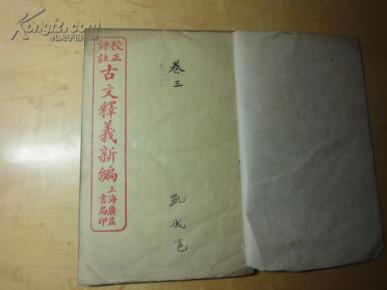 校正
評註
古文釋義新編
上海廣益
書局印
卷三
Kongfz.com
孔夫子旧书网